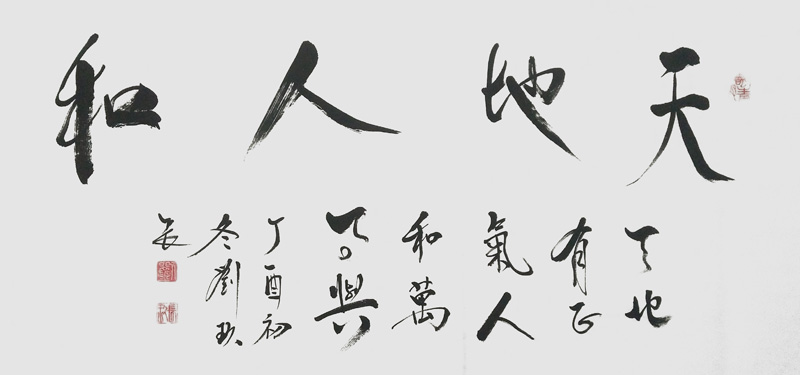 天地人和
天地
有正
氣人
和萬
事興
丁酉初
冬劉玖
長